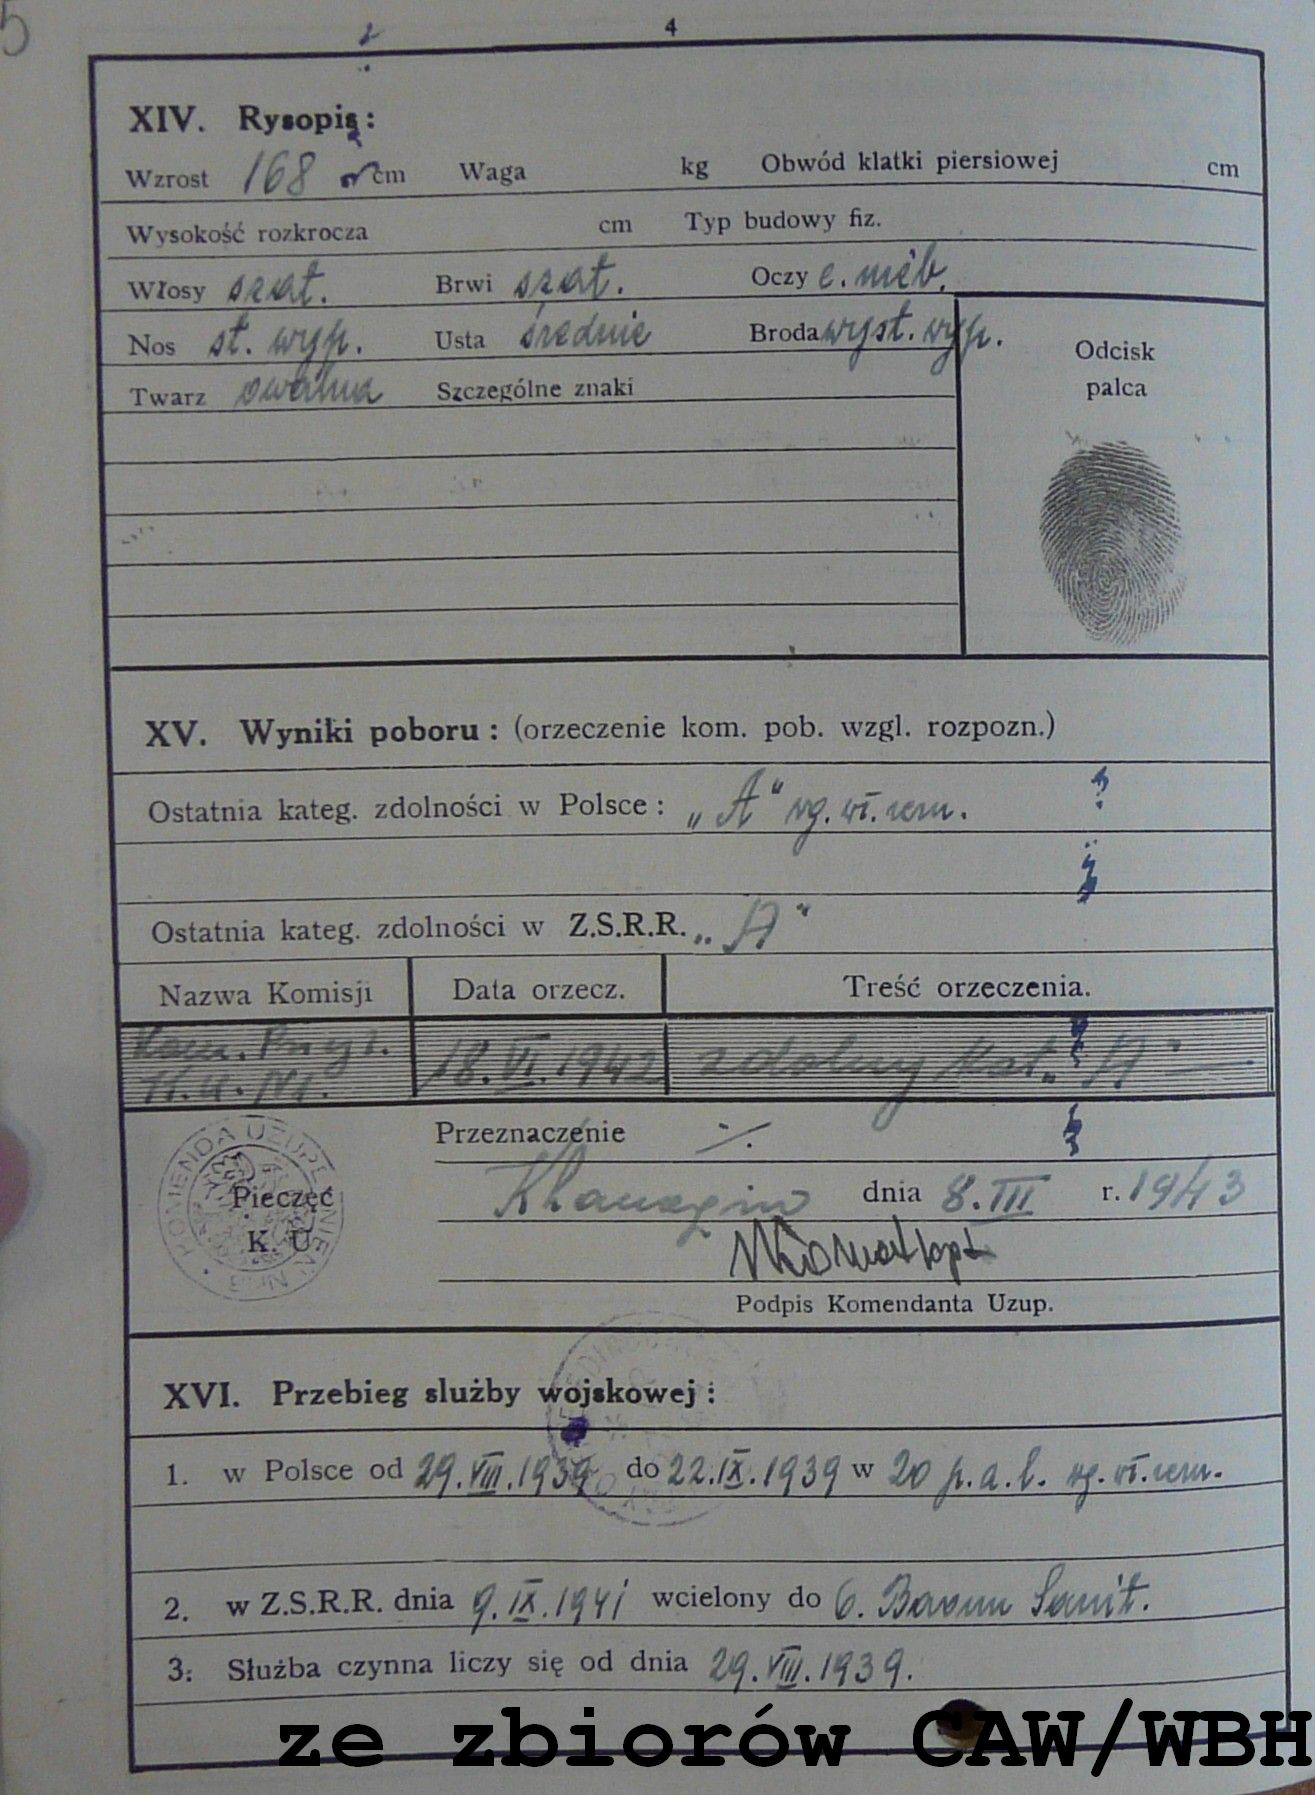 4
XIV. Rysopis:
Wzrost 168 cm Waga kg Obwód klatki piersiowej cm
Wysokość rozkrocza cm Typ budowy fiz.
Włosy szat. Brwi szat. Oczy c. nieb.
Nos st. wyp. Usta średnie Broda wyst. wyp.
Twarz owalna Szczególne znaki
Odcisk
palca
XV. Wyniki poboru: (orzeczenie kom. pob. wzgl. rozpozn.)
Ostatnia kateg. zdolności w Polsce: „A" wg. wł. zezn.
Ostatnia kateg. zdolności w Z.S.R.R. „A"
Nazwa Komisji Data orzecz. Treść orzeczenia.
Kom. 18.VI.1942 zdolny kat. „A" —
Przeznaczenie ·/.
KOMENDA UZUPEŁNIEŃ
Pieczęć
K. U
Khanaqin dnia 8.III r. 1943
Podpis Komendanta Uzup.
XVI. Przebieg służby wojskowej:
1. w Polsce od 29.VIII.1939 do 22.IX.1939 w 20 p.a.l. wg. wł. zezn.
2. w Z.S.R.R. dnia 9.IX.1941 wcielony do 6. Baonu Sanit.
3. Służba czynna liczy się od dnia 29.VIII.1939.
ze zbiorów CAW/WBH